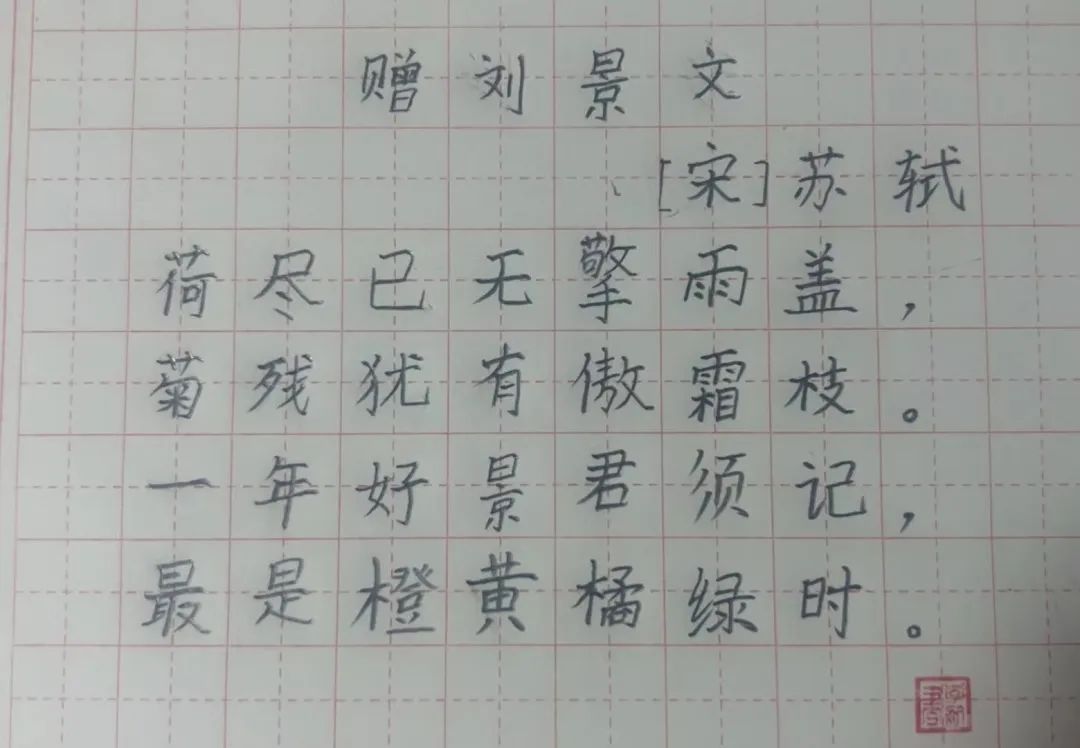 赠刘景文
[宋]苏轼
荷尽已无擎雨盖，
菊残犹有傲霜枝。
一年好景君须记，
最是橙黄橘绿时。